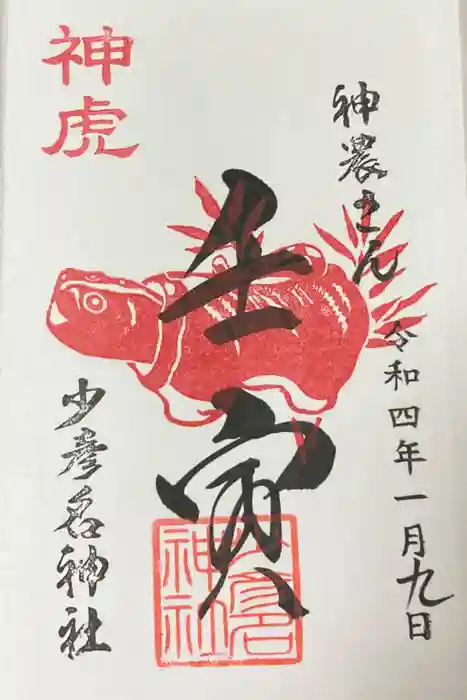 神農さん
令和四年一月九日
壬寅
神虎
少彦名神社
少彦名
神社